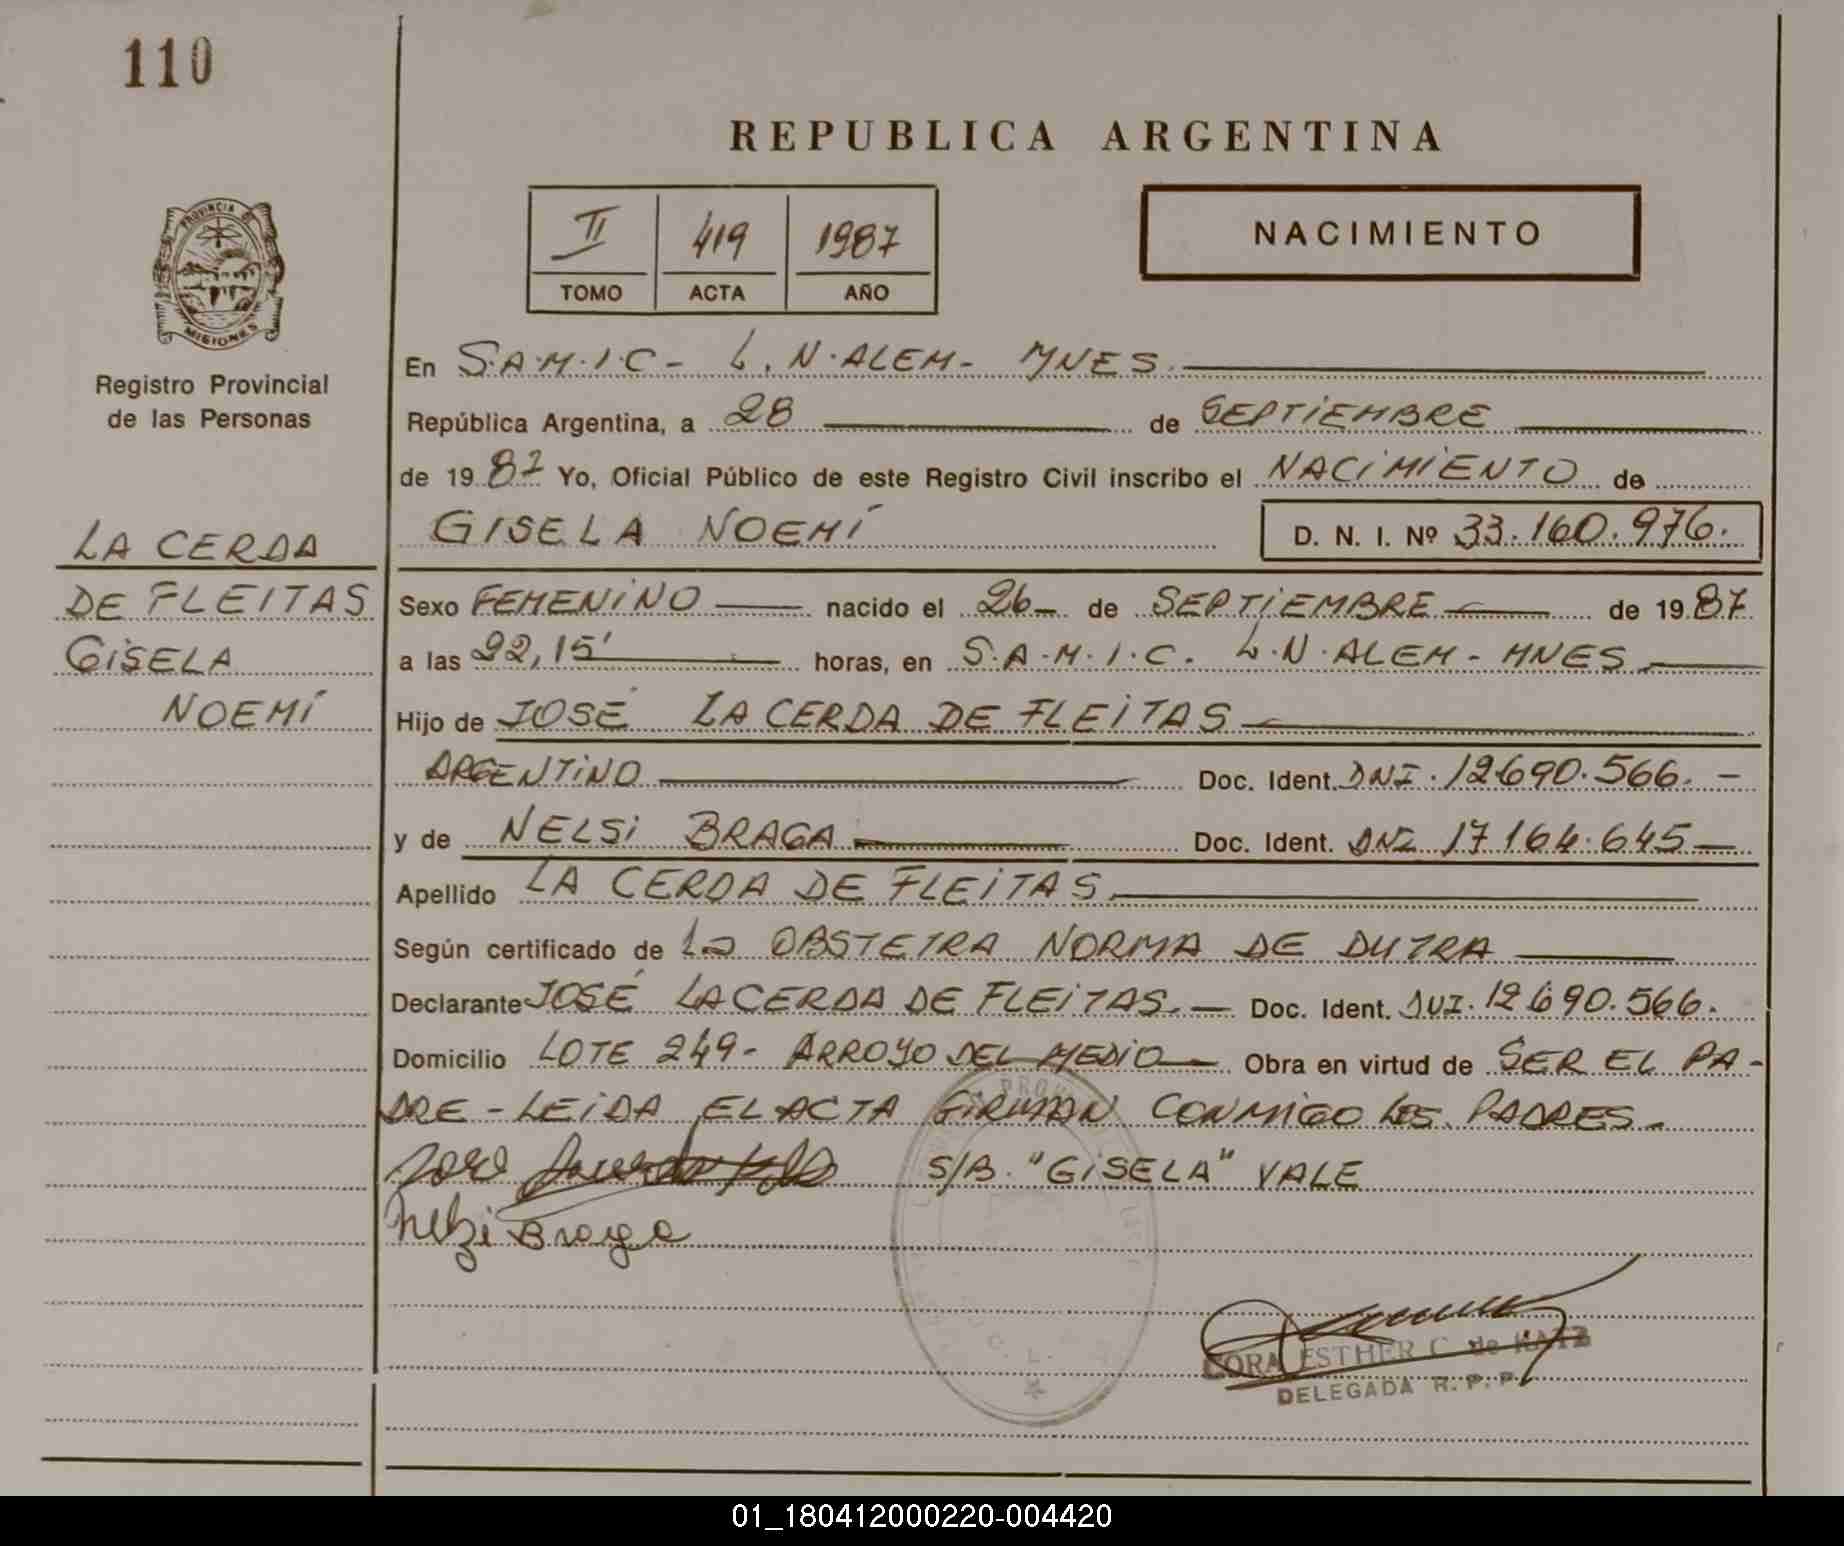 110
REPUBLICA ARGENTINA
II 419 1987
TOMO ACTA AÑO
NACIMIENTO
PROVINCIA DE
MISIONES
Registro Provincial
de las Personas
LA CERDA
DE FLEITAS
GISELA
NOEMÍ
En S.A.M.I.C- L.N.ALEM- MNES.
República Argentina, a 28 de SEPTIEMBRE
de 1987 Yo, Oficial Público de este Registro Civil inscribo el NACIMIENTO de
GISELA NOEMÍ D. N. I. Nº 33.160.976.
Sexo FEMENINO nacido el 26 de SEPTIEMBRE de 1987
a las 22,15' horas, en S.A.M.I.C. L.N.ALEM- MNES
Hijo de JOSÉ LA CERDA DE FLEITAS
ARGENTINO Doc. Ident. DNI. 12.690.566. -
y de NELSI BRAGA Doc. Ident. DNI 17.164.645
Apellido LA CERDA DE FLEITAS
Según certificado de La OBSTETRA NORMA DE DUTRA
Declarante JOSÉ LACERDA DE FLEITAS. Doc. Ident. DNI. 12.690.566.
Domicilio LOTE 249- ARROYO DEL MEDIO Obra en virtud de SER EL PA-
DRE - LEIDA EL ACTA FIRMAN CONMIGO LOS PADRES.
S/B. "GISELA" VALE
Nelzi Braga
CORA ESTHER C. de KATZ
DELEGADA R. P. P.
01_180412000220-004420